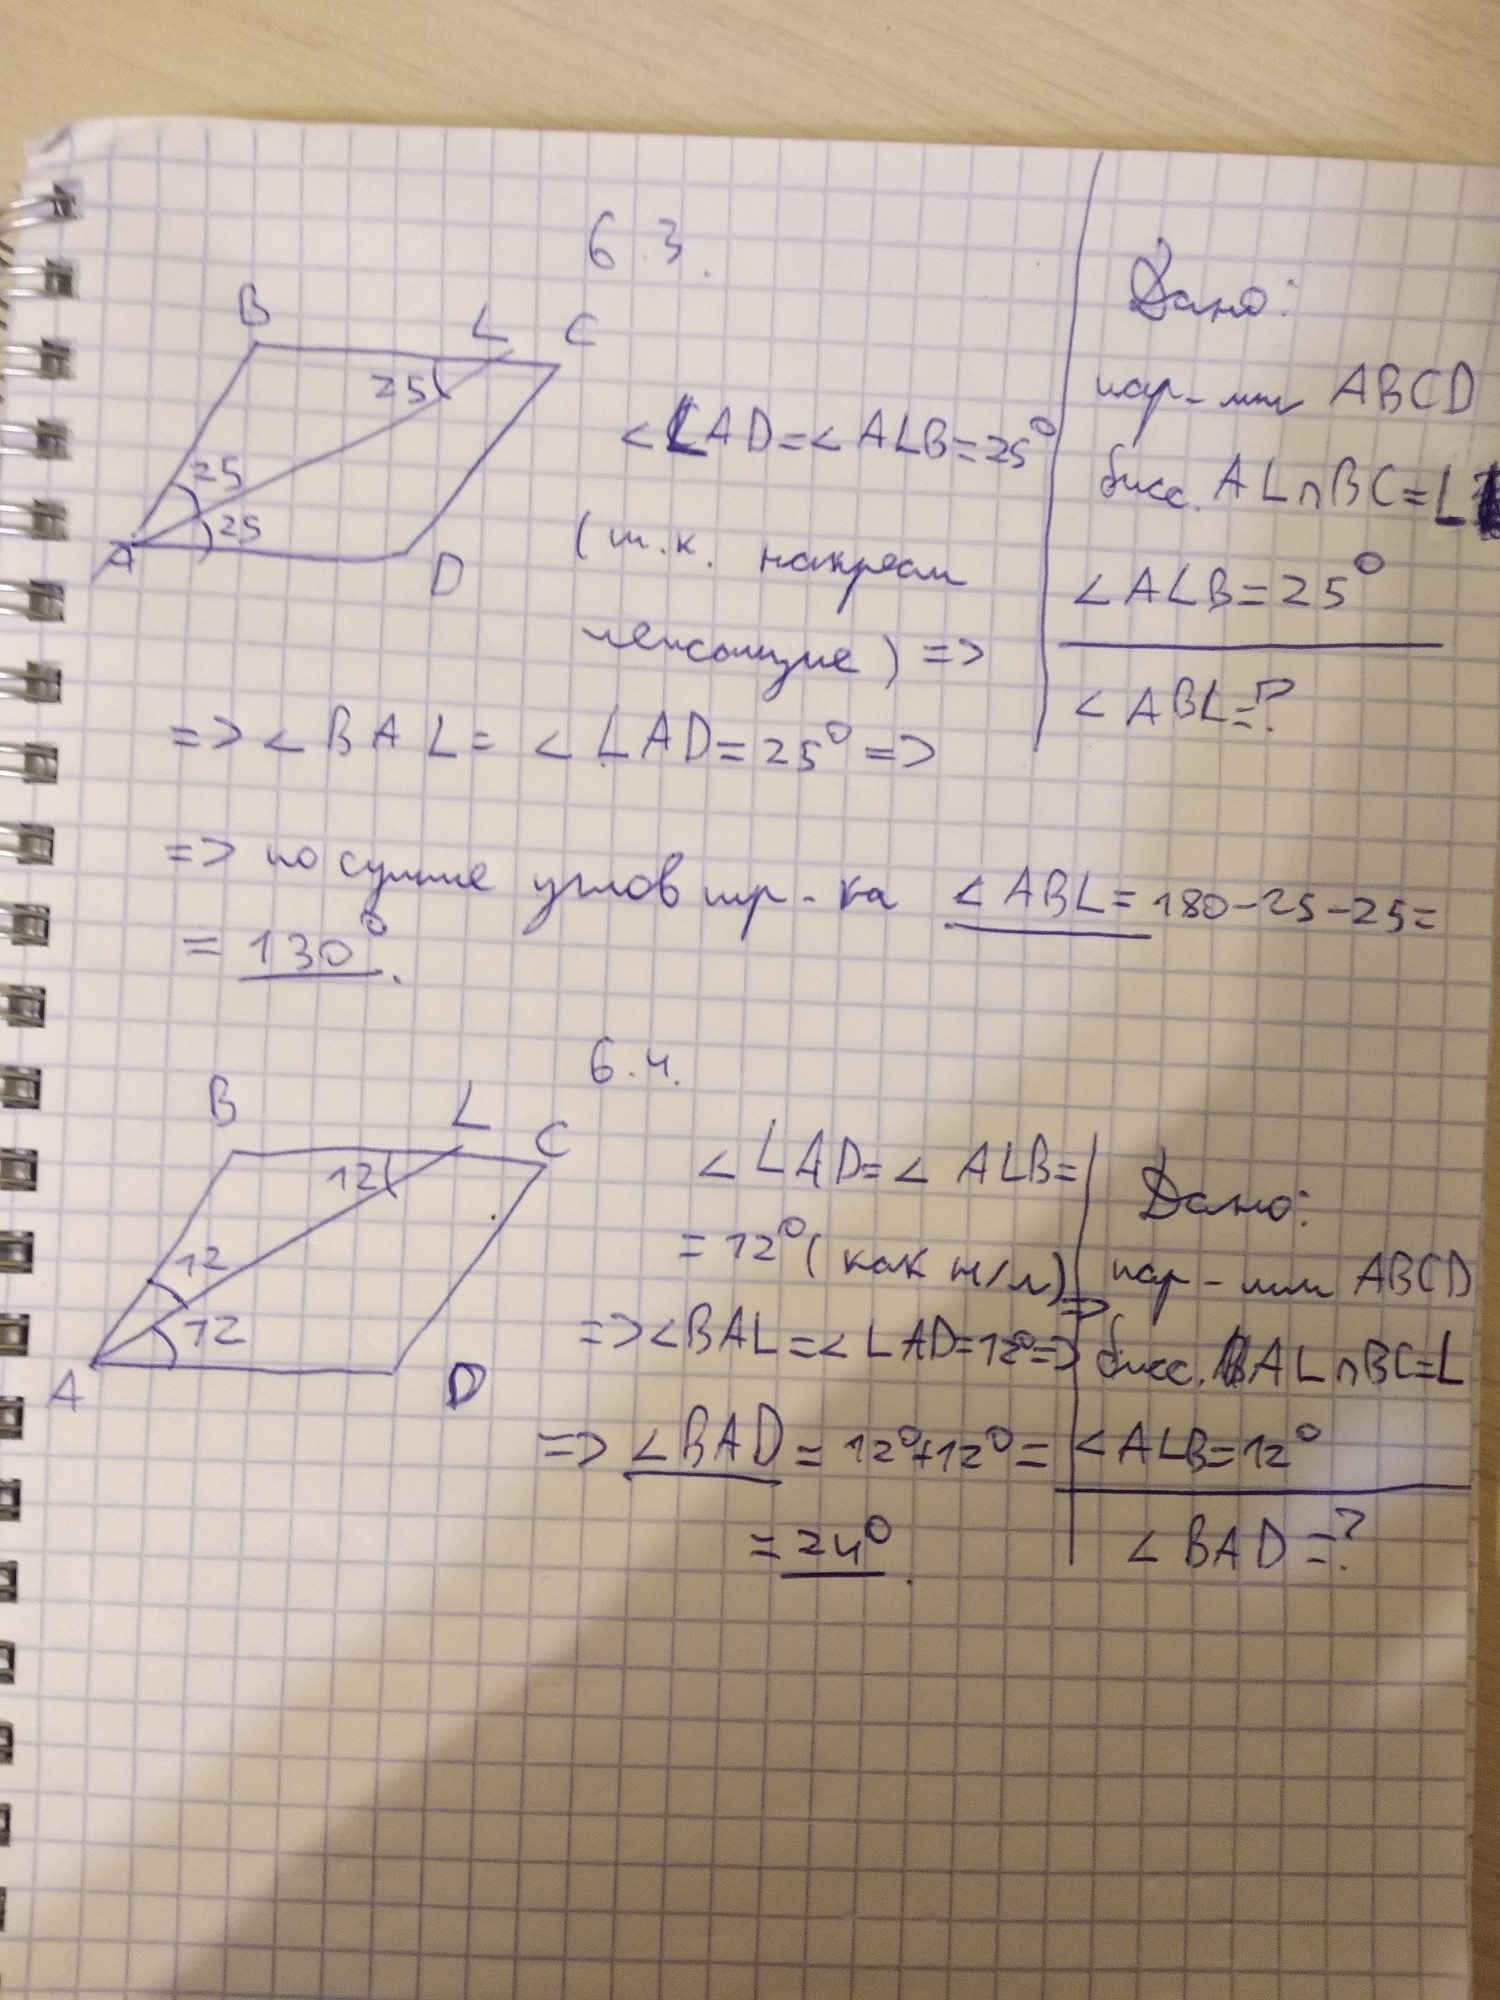 6.3.
B
L
C
25
25
25
A
D
<LAD=<ALB=25°
(т.к. накрест
лежащие) =>
=> <BAL= <LAD=25° =>
=> по сумме углов тр-ка <ABL= 180-25-25=
= 130°.
Дано:
пар-мм ABCD
бисс. AL∩BC=L
<ALB=25°
<ABL=?
6.4.
B
L
C
12
12
12
A
D
<LAD=< ALB=
=12° (как н/л) =>
=> <BAL=<LAD=12° =>
=> <BAD = 12°+12° =
= 24°.
Дано:
пар-мм ABCD
бисс. AL∩BC=L
<ALB=12°
<BAD =?